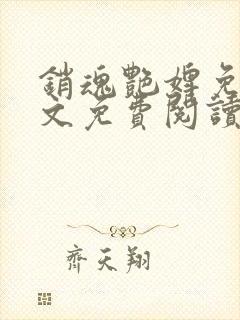 銷魂艷婢免
文免費閱讀
齊天翔